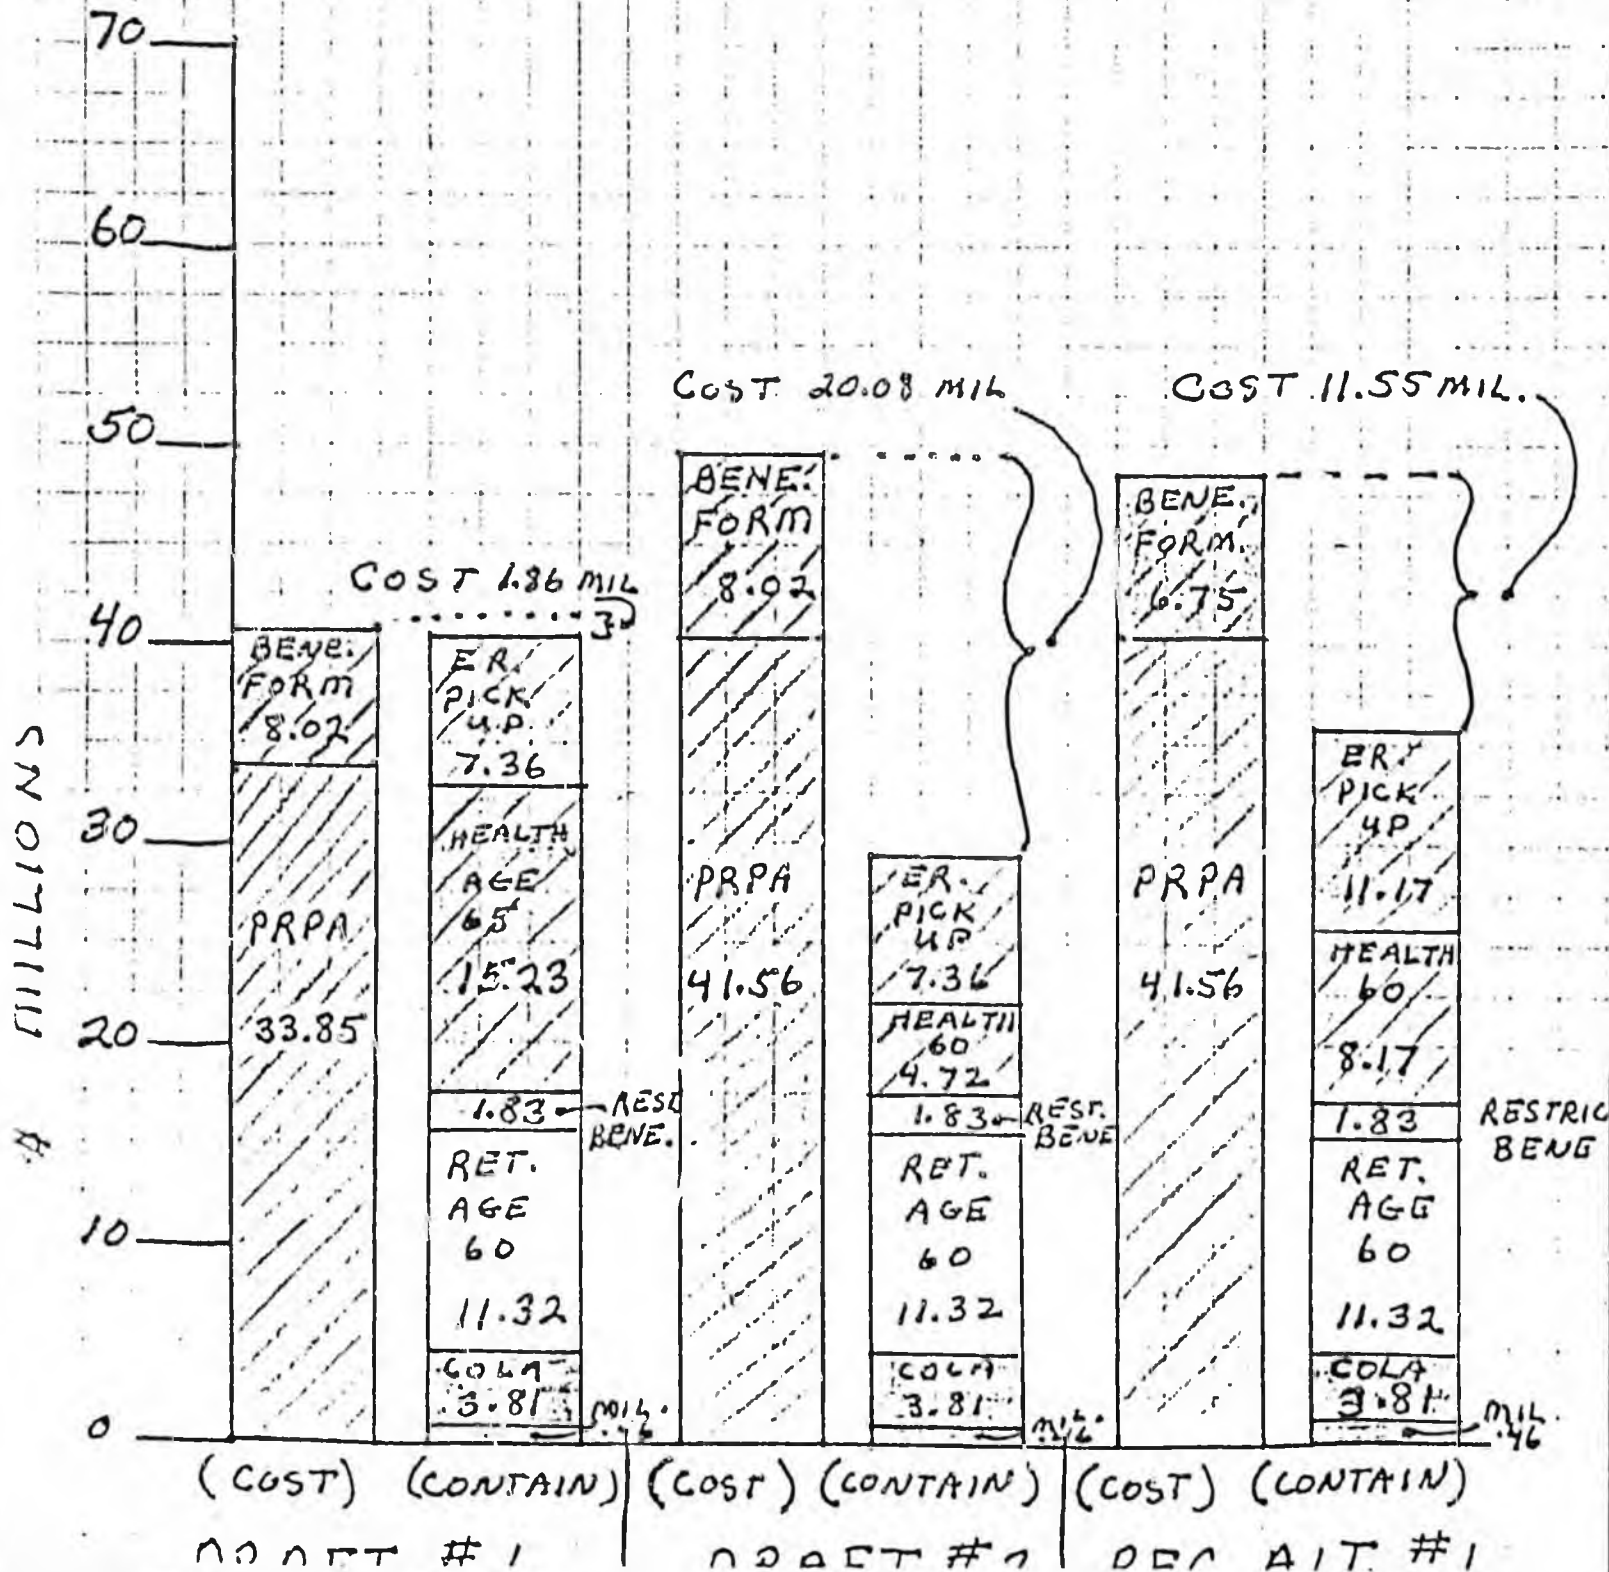 70
60
50
40
30
20
10
0
MILLIONS
COST 1.86 MIL
COST 20.08 MIL
COST 11.55 MIL.
BENE.
FORM
8.02
PRPA
33.85
ER.
PICK
UP.
7.36
HEALTH
AGE
65
15.23
1.83
BENE.
RET.
AGE
60
11.32
COLA
3.81
MIL.
BENE.
FORM
8.02
PRPA
41.56
ER.
PICK
UP
7.36
HEALTH
60
4.72
1.83
REST.
BENE
RET.
AGE
60
11.32
COLA
3.81
MIL.
BENE.
FORM.
6.75
PRPA
41.56
ER.
PICK
UP
11.17
HEALTH
60
8.17
1.83
RESTRIC
BENE
RET.
AGE
60
11.32
COLA
3.81
MIL.
.46
(COST) (CONTAIN) (COST) (CONTAIN) (COST) (CONTAIN)
#1
ALT. #1